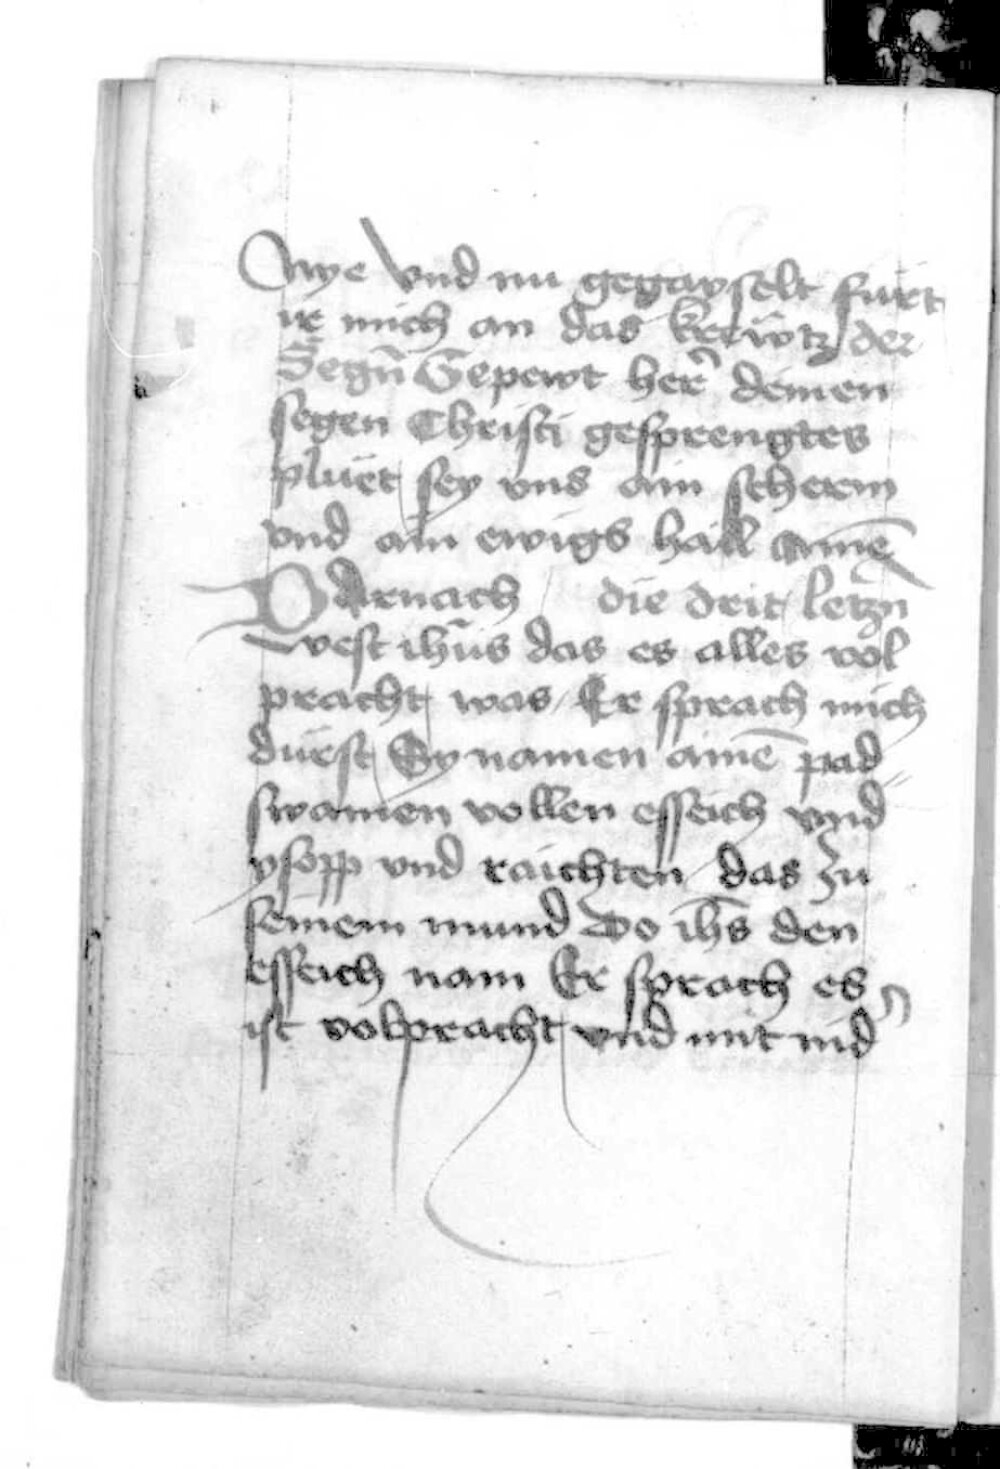 Owye vnd nu gegayselt fuirt
ir mich an das krewtz der
Segñ Gepewt her̃ deinen
segen Christi gesprengtes
pluet sey vns ain scherm
vnd ain ewigs hail amē
Darnach die drit letzñ
West ihūs das es alles vol
pracht was Er sprach mich
durst Sy namen ainē pad
swamen vollen esseich vnd
ysopp vnd raichten das zu
seinem mund Do ihs̄ den
esseich nam Er sprach es
ist volpracht vnd mit nid̾